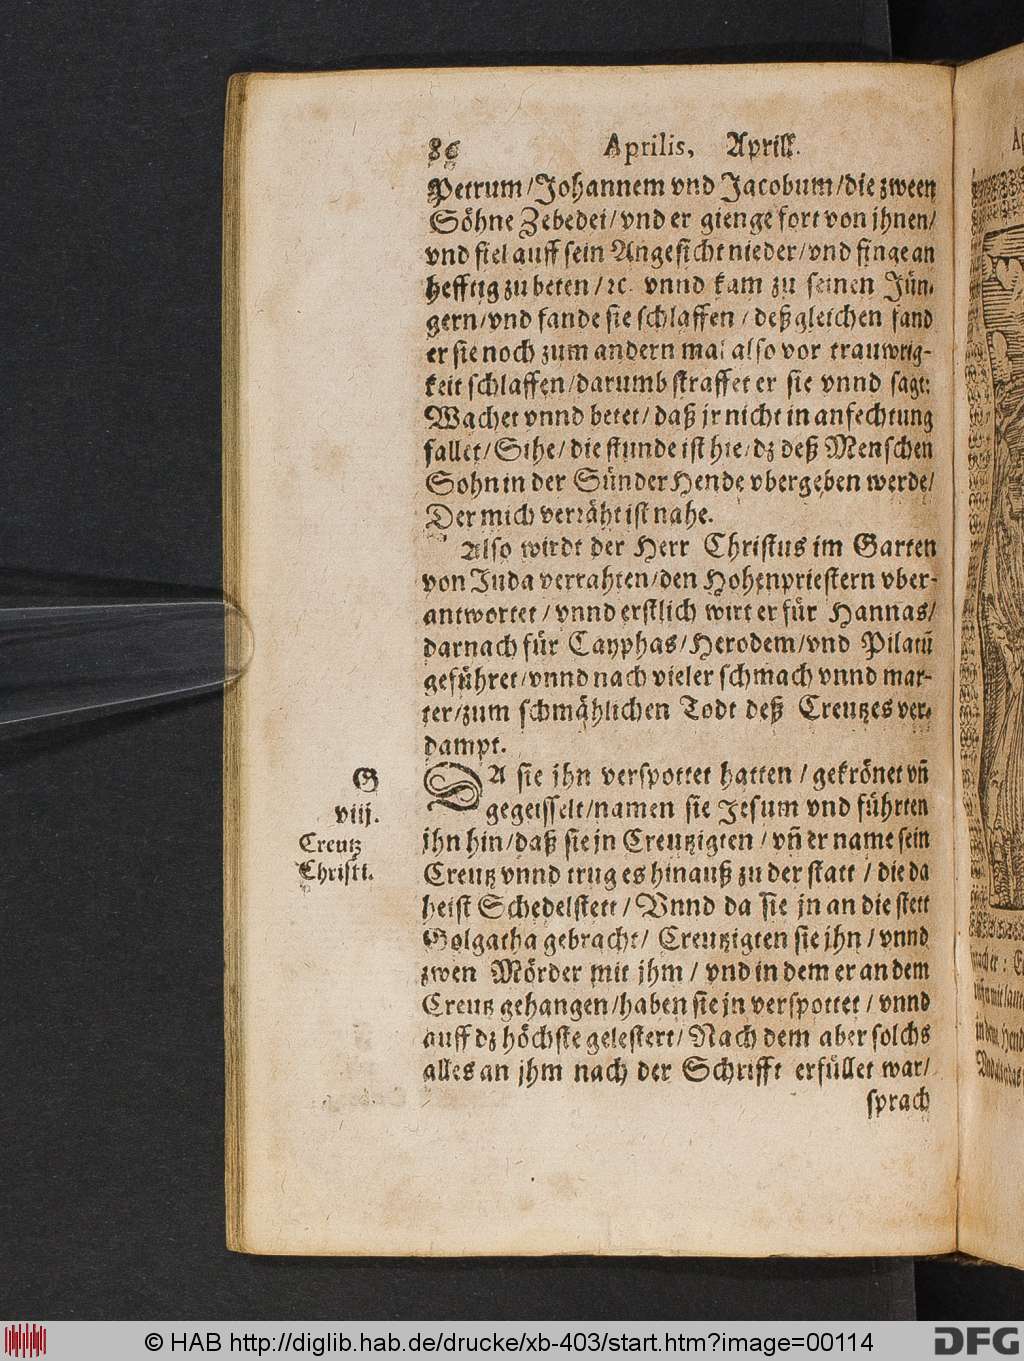 86 Aprilis, Aprill.
Petrum/Johannem vnd Jacobum/die zween
Söhne Zebedei/vnd er gienge fort von jhnen/
vnd fiel auff sein Angesicht nieder/vnd finge an
hefftig zu beten/ꝛc. vnnd kam zu seinen Jün-
gern/vnd fande sie schlaffen/deßgleichen fand
er sie noch zum andern mal also vor trauwrig-
keit schlaffen/darumb straffet er sie vnnd sagt:
Wachet vnnd betet/daß jr nicht in anfechtung
fallet/Sihe/die stunde ist hie/dz deß Menschen
Sohn in der Sünder Hende vbergeben werde/
Der mich verräht ist nahe.
Also wirdt der Herr Christus im Garten
von Juda verrahten/den Hohenpriestern vber-
antwortet/vnnd erstlich wirt er für Hannas/
darnach für Cayphas/Herodem/vnd Pilatū
geführet/vnnd nach vieler schmach vnnd mar-
ter/zum schmählichen Todt deß Creutzes ver-
dampt.
G
viij.
Creutz
Christi.
DA sie jhn verspottet hatten/gekrönet vñ
gegeisselt/namen sie Jesum vnd führten
jhn hin/daß sie jn Creutzigten/vñ er name sein
Creutz vnnd trug es hinauß zu der statt/die da
heist Schedelstett/Vnnd da sie jn an die stett
Golgatha gebracht/Creutzigten sie jhn/vnnd
zwen Mörder mit jhm/vnd in dem er an dem
Creutz gehangen/haben sie jn verspottet/vnnd
auff dz höchste gelestert/Nach dem aber solchs
alles an jhm nach der Schrifft erfüllet war/
sprach
© HAB http://diglib.hab.de/drucke/xb-403/start.htm?image=00114
DFG